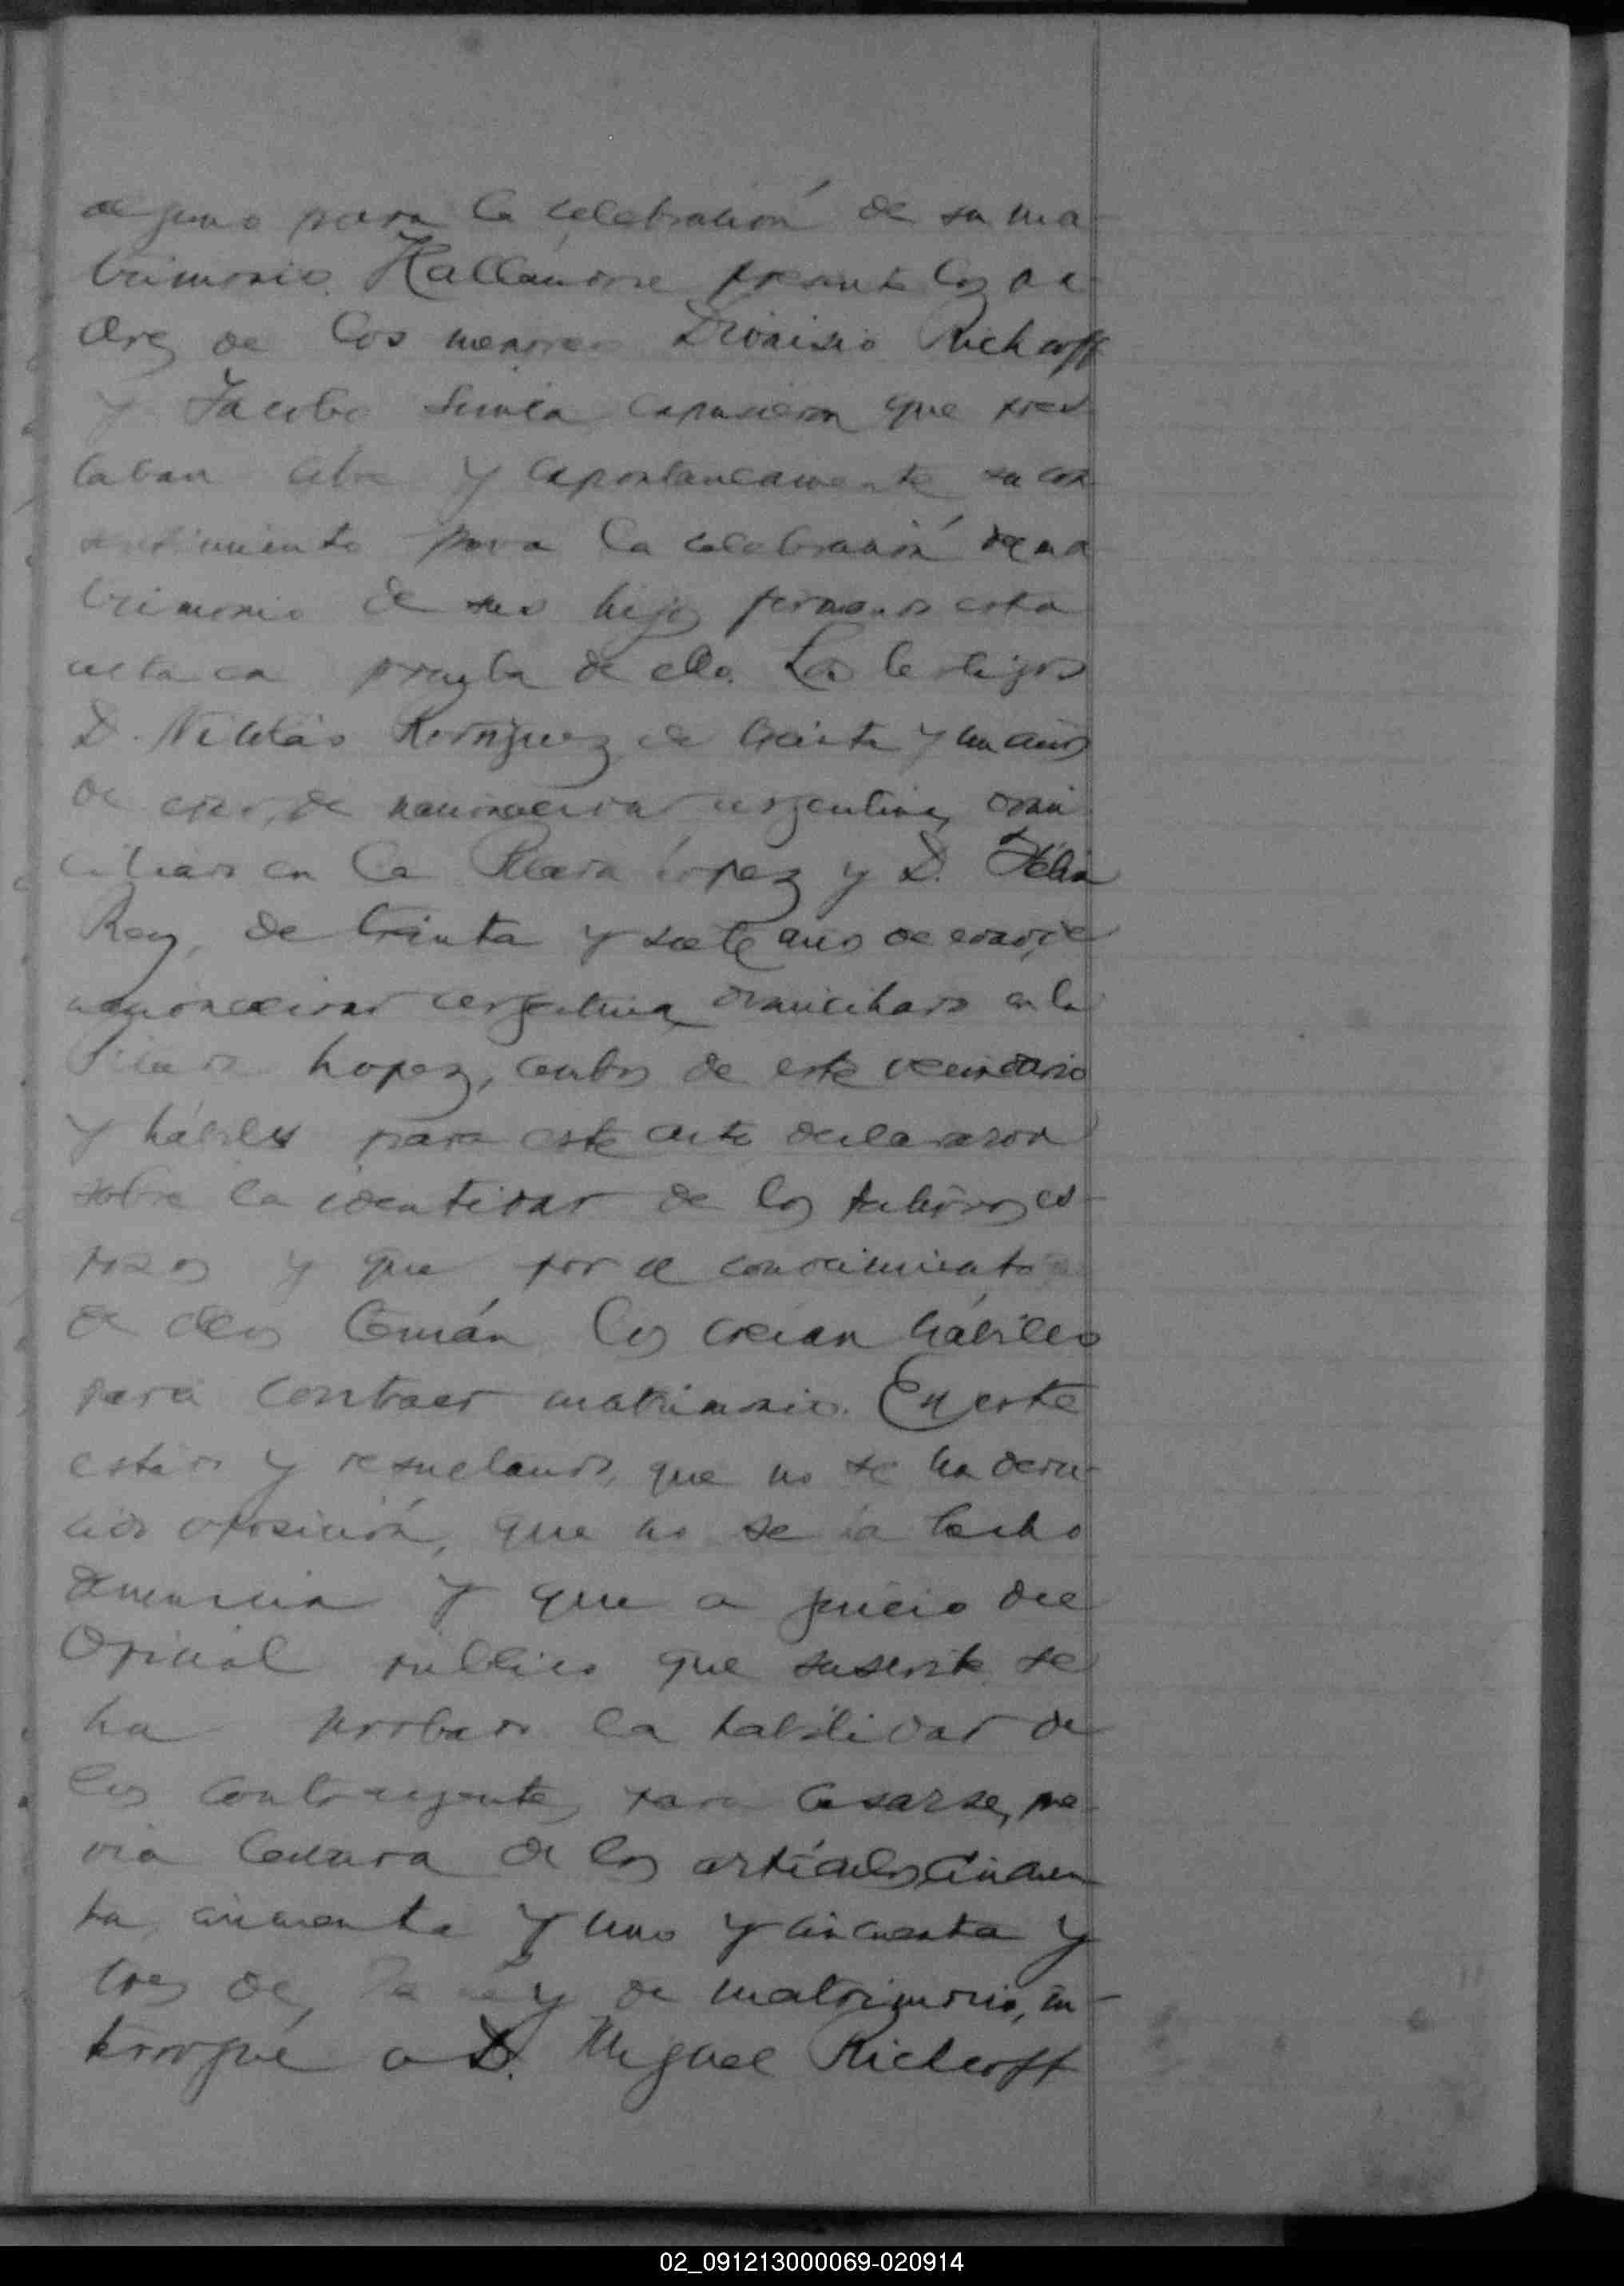 alguno para la celebración de su ma-
trimonio. Hallándose presente los pa-
dres de los menores Dionisio Richoff
y Jacobo expusieron que pres-
taban libre y espontaneamente su con
sentimiento para la celebración de ma
trimonio de sus hijos firmando esta
acta en prueba de ello. Los testigos
D. Nicolás Rodriguez de treinta y un años
de edad, de nacionalidad argentina, domi
ciliado en la Plaza López y D. Félix
Rey, de treinta y siete años de edad, de
nacionalidad argentina, domiciliado en la
Plaza Lopez, ambos de este vecindario
y hábiles para este acto declararon
sobre la identidad de los futuros es-
posos y que por el conocimiento
de ellos tenían los creían hábiles
para contraer matrimonio. En este
estado y resultando, que no se ha dedu-
cido oposición, que no se ha hecho
denuncia y que a juicio del
Oficial público que suscribe se
ha probado la habilidad de
los contrayentes para casarse, pre-
via lectura de los artículos cincuen
ta, cincuenta y uno y cincuenta y
tres de la ley de matrimonio, in-
terrogué a D. Miguel Richoff
02_091213000069-020914